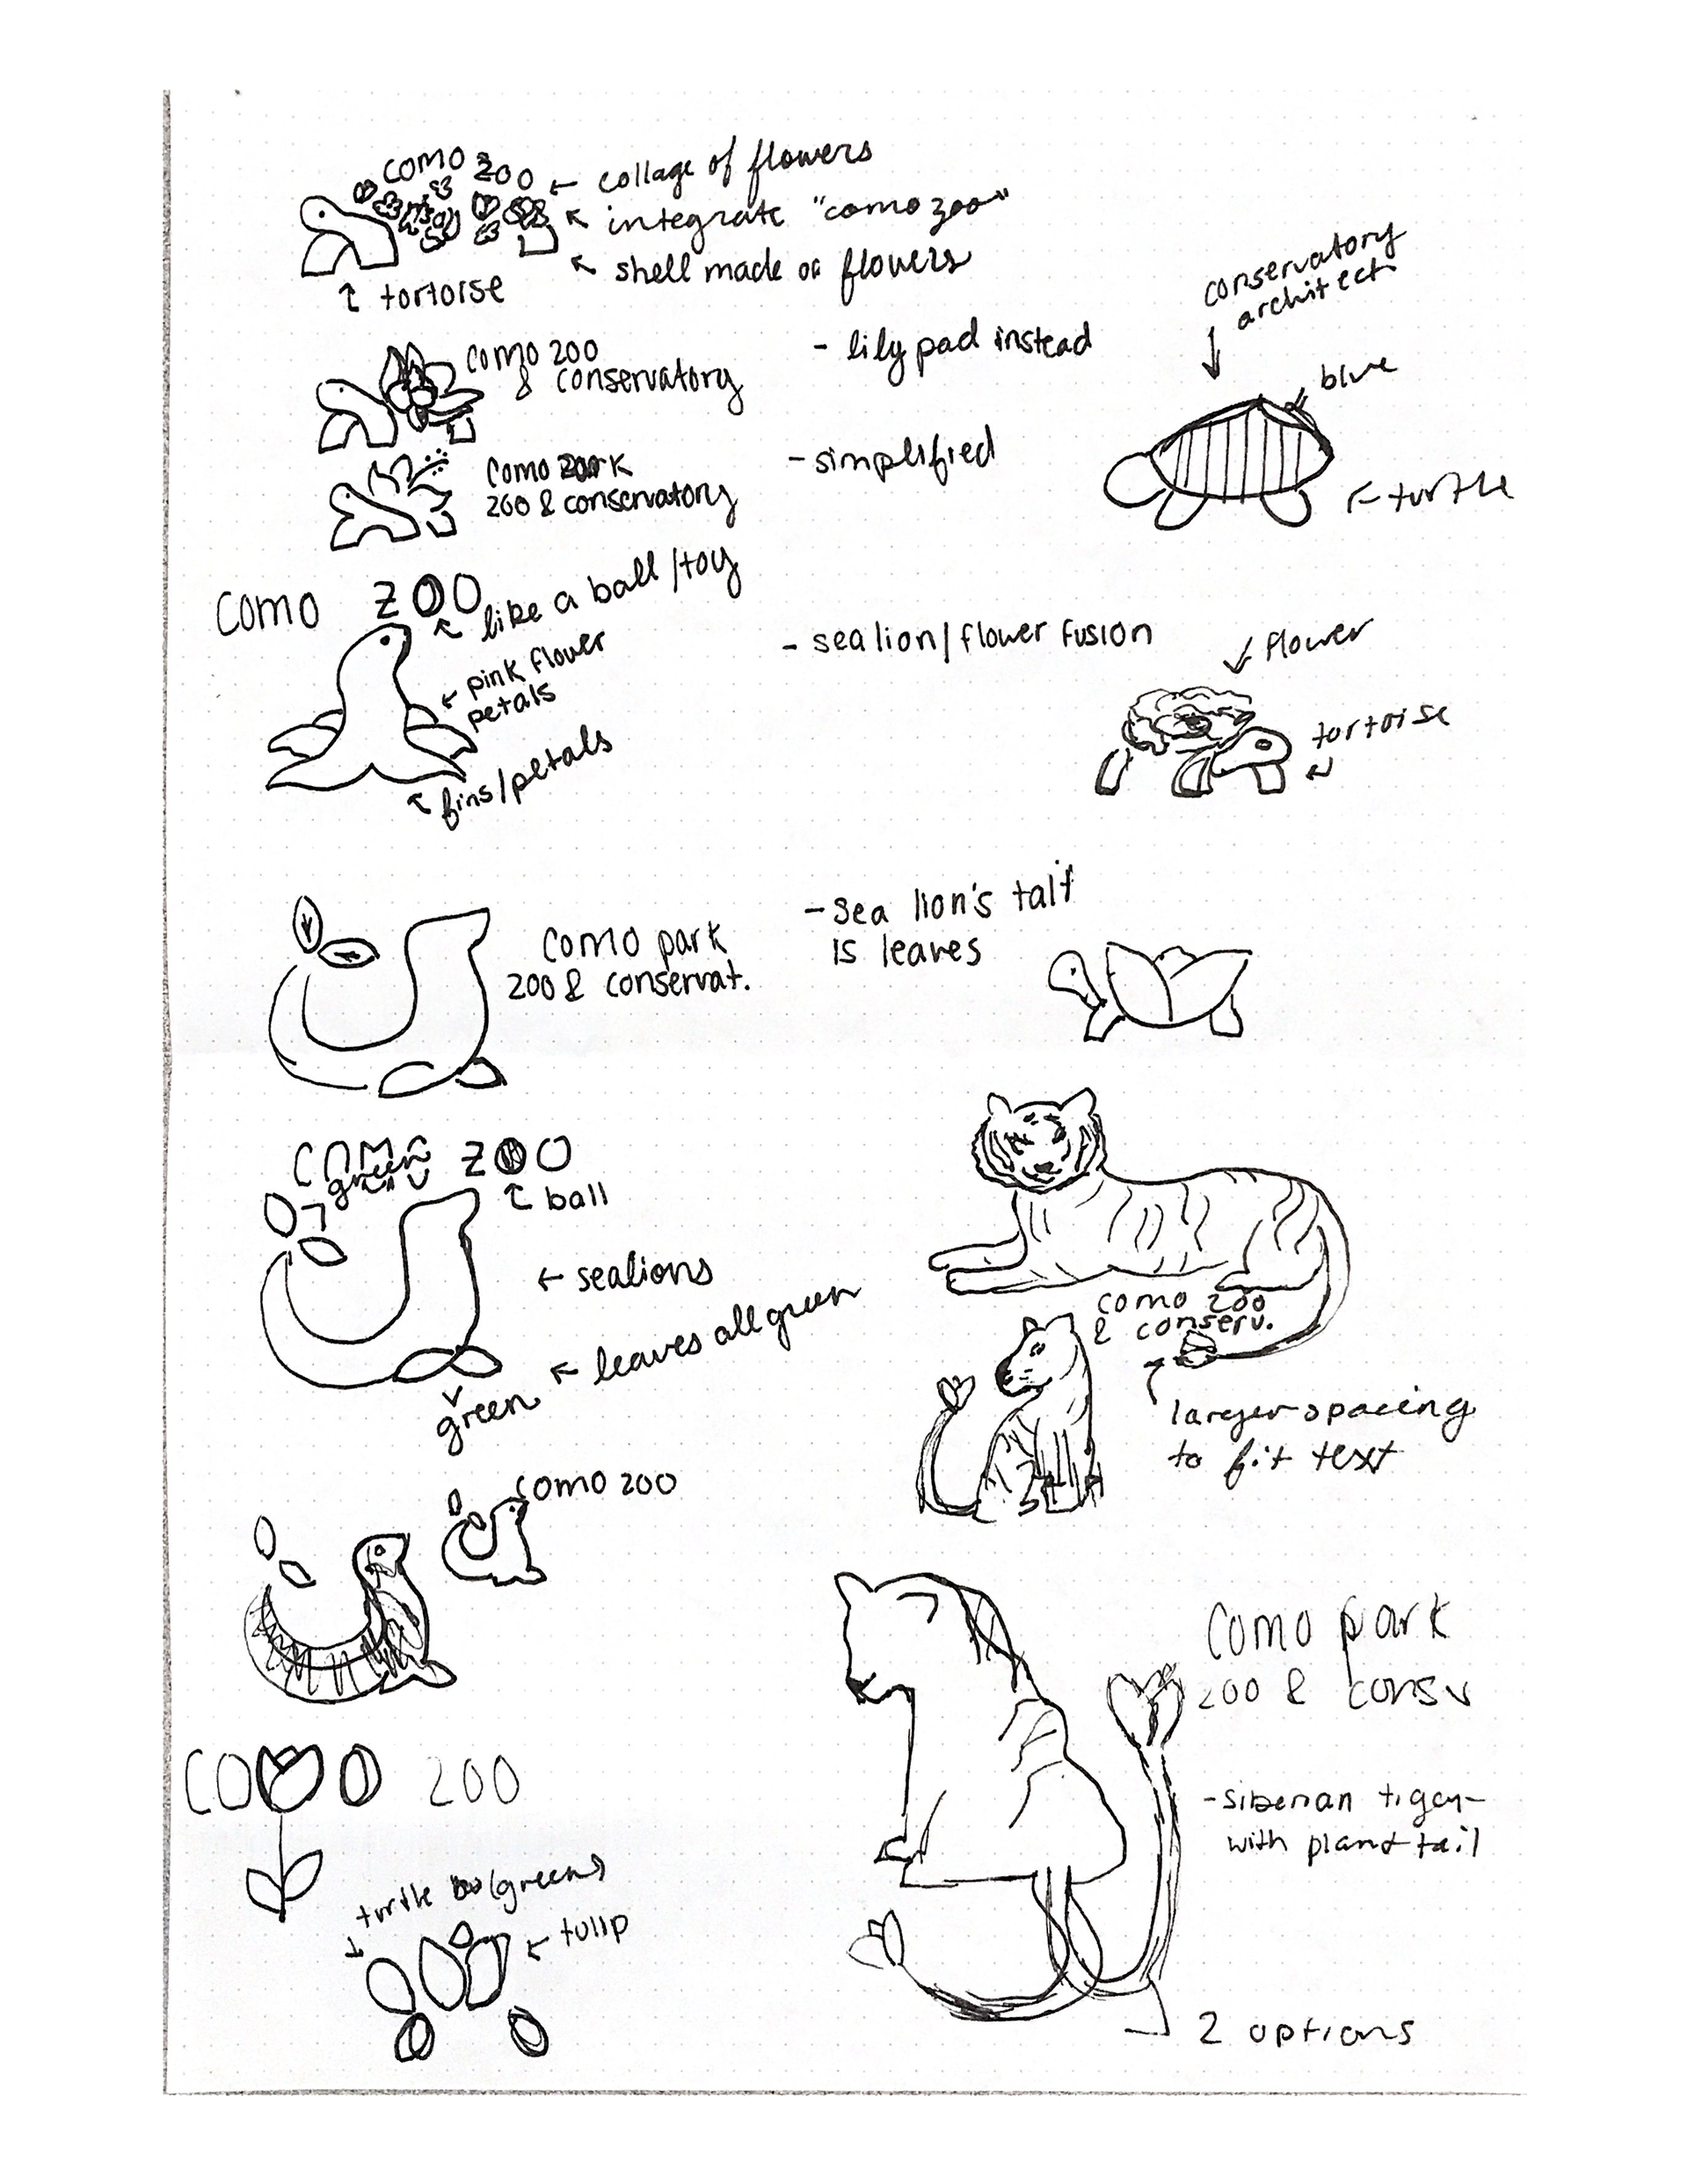 como zoo
← collage of flowers
integrate "como zoo"
shell made of flowers
tortoise
conservatory
architect
como zoo
& conservatory
- lily pad instead
blue
como park
zoo & conservatory
- simplified
← turtle
como zoo
like a ball/toy
pink flower
petals
fins/petals
- sea lion/flower fusion
flower
tortoise
como park
zoo & conservat.
- sea lion's tail
is leaves
zoo
green
ball
← sealions
← leaves all green
green
como zoo
& conserv.
larger spacing
to fit text
como zoo
como park
zoo & consv
- siberian tiger
with plant tail
como zoo
turtle (green)
← tulip
2 options